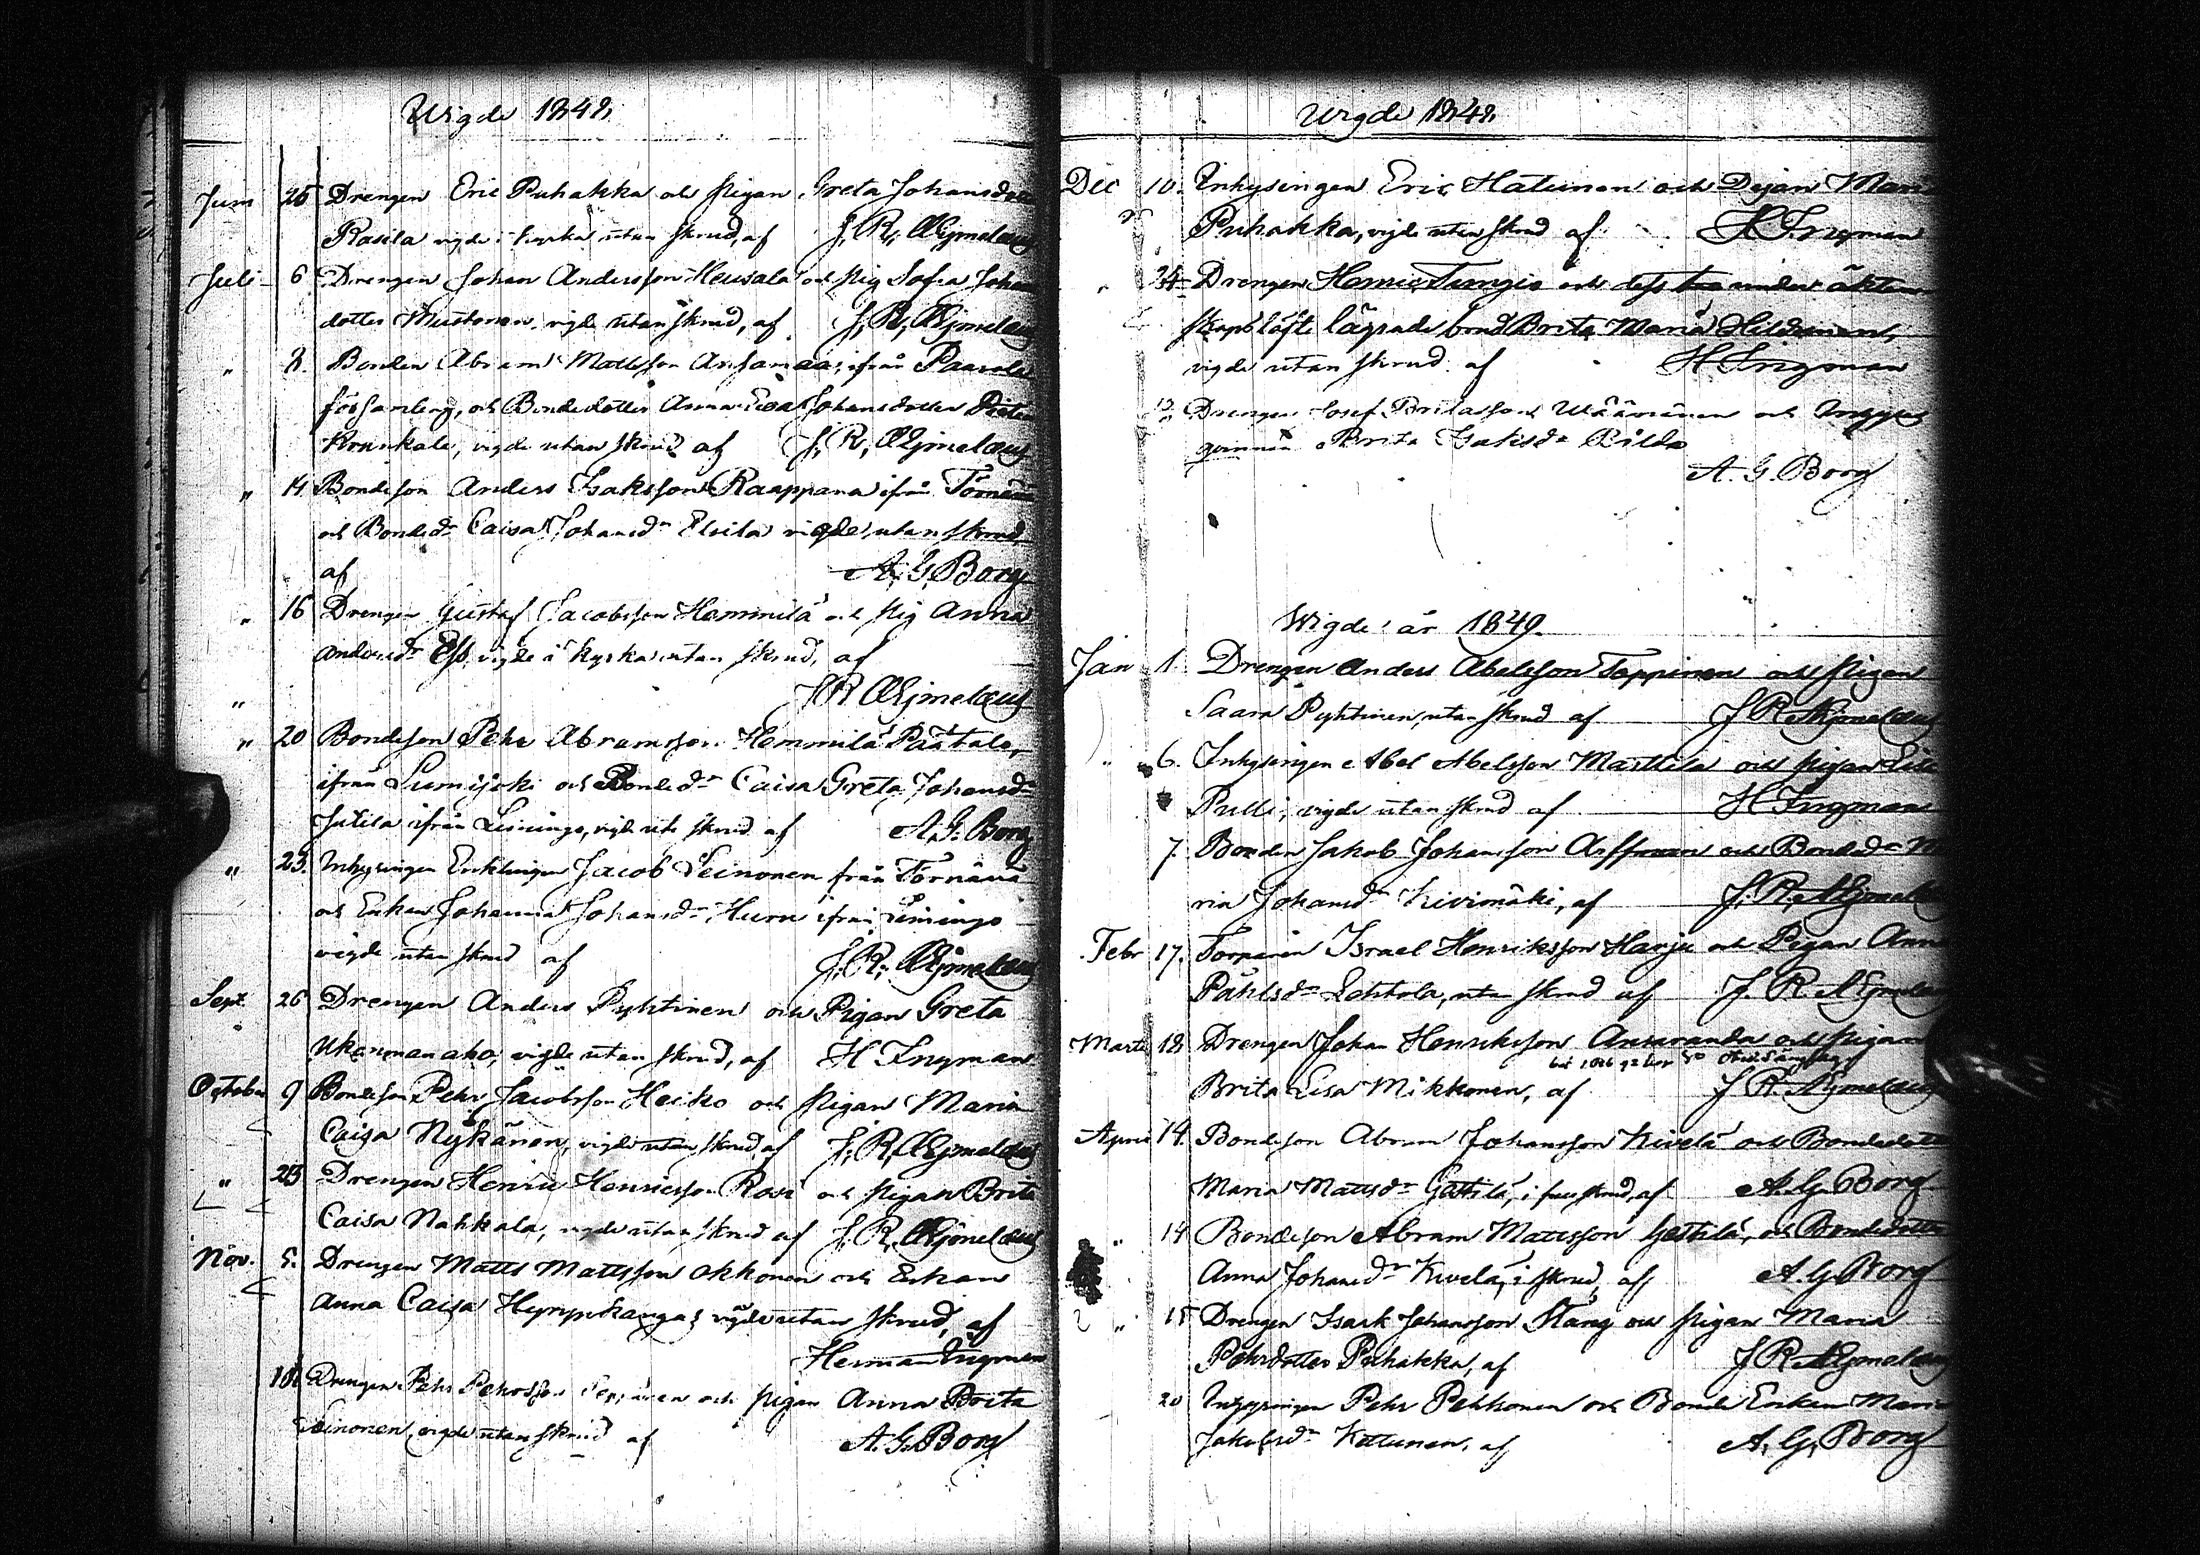 Wigde 1848,
Juni 25 Drengen Eric Puhakka och pigan Greta Johansdotter
Rasila vigde i kyrka utan skrud, af J. R. Æjmelæus
Juli 6 Drengen Johan Andersson Heusala och pig Sofia Johans
dotter Mustonen, vigde utan skrud, af J. R. Æjmelæus
" 8. Bonden Abram Mattsson Ansamaa, ifrån Paavola
församling, och Bondedotter Anna Eva Johansdotter
Krunkala, vigde utan skrud af J. R. Æjmelæus
" 14 Bondeson Anders Isaksson Raappana ifrån Törnävä
och Bonded:r Caisa Johansd:r Elsila vigde utan skrud,
af A. G. Borg
" 16 Drengen Gustaf Jacobsson Hemmilä och pig Anna
Andersd:r vigde i kyrka utan skrud, af
" J R Æjmelæus
" 20 Bondeson Pehr Abramsson Hemmilä Paatalo,
ifrån Lumijoki och Bonded:r Caisa Greta Johansd:r
Jutila ifrån Limingo, vigde utan skrud af A. G. Borg
" 23. Inhysingen Enklingen Jacob Leinonen från Törnävä
och Enkan Johanna Johansd:r Huru ifrån Limingo
vigde utan skrud af J. R. Æjmelæus
Sept. 26 Drengen Anders Pyhtinen och Pigan Greta
Ukonmanaho, vigde utan skrud, af H Ingman
October 9 Bondeson Pehr Jacobsson Heiko och pigan Maria
Caisa Nykänen, vigde utan skrud, af J. R. Æjmelæus
" 23 Drengen Henric Henricsson Rasi och pigan Brita
Caisa Nahkala, vigde utan skrud af J. R. Æjmelæus
Nov. 5. Drengen Matts Mattsson Okkonen och Enkan
Anna Caisa Hymynkangas vigde utan skrud, af
Herman Ingman
18 Drengen Pehr Pehrsson och pigan Anna Brita
Leinonen, vigde utan skrud af A. G. Borg
Wigde 1848,
Dec 10. Inhysingen Eric Hatunen och Dejan Maria
Puhakka, vigde utan skrud af H Ingman
" Drengen Henric Turngio och dess under äkten
skapslöfte lägrade brud Brita Maria
vigde utan skrud af H Ingman
Drengen Josef Britasson Wäänänen och
Brita Isaksd:r Pilto
A. G. Borg
Wigde år 1849.
Jan 1. Drengen Anders Abelsson Tappinen och pigan
Saara Pyhtinen, utan skrud af J R Æjmelæus
" 6. Inhysingen Abel Abelsson Marttila och pigan Lisa
Pulli, vigde utan skrud af H Ingman
7. Bonden Jakob Johansson Arffman och Bonded:r Ma
ria Johansd:r Kivimäki, af J. R. Æjmelæus
Febr 17. Torparen Israel Henriksson Harju och Pigan Anna
Påhlsd:r Lehtola, utan skrud af J. R. Æjmelæus
Marti 18 Drengen Johan Henriksson Ansaranda och pigan
Brita Lisa Mikkonen, af J R. Æjmelæus
April 14. Bondeson Abram Johansson Kivelä och Bondedotter
Maria Mattsd:r Gästilä, i full skrud, af A. G. Borg
" 14 Bondeson Abram Mattsson Gästilä, och Bondedotter
Anna Johansd:r Kivelä, i skrud, af A. G. Borg
" 15 Drengen Isack Johansson Stång och pigan Maria
Pehrsdotter Puhakka, af J R Æjmelæus
20 Inhysingen Pehr Pekkonen och Bonde Enkan Maria
Jakobsd:r Kettunen, af A. G. Borg